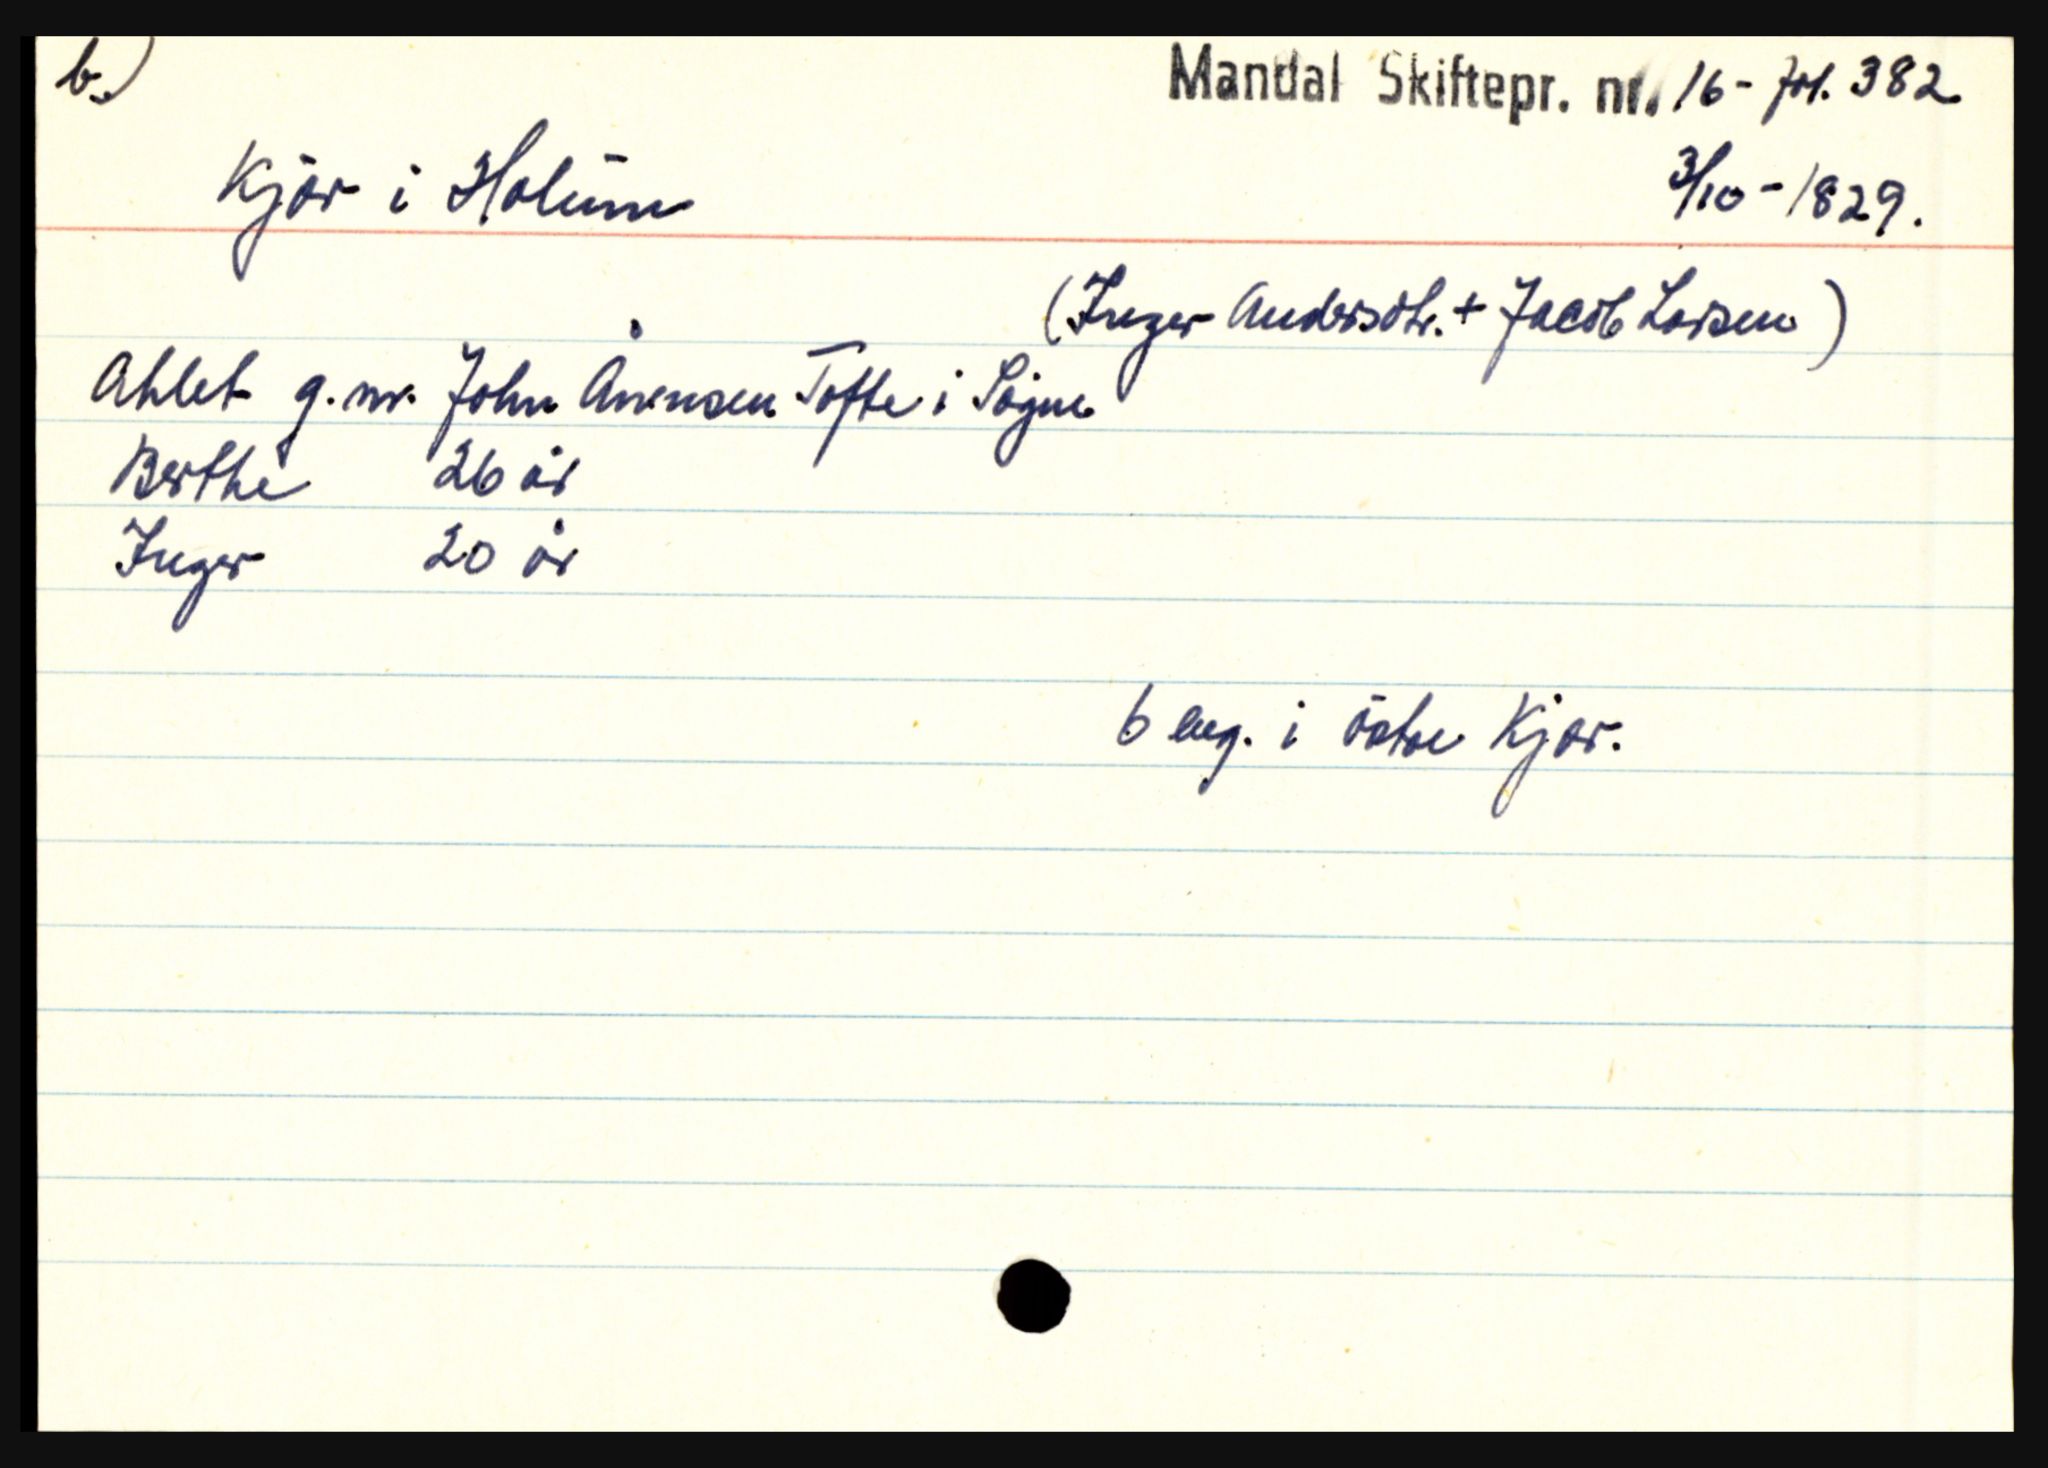 b.)
Mandal Skiftepr. nr. 16 - fol. 382.
Kjør i Holum
3/10 - 1829.
(Inger Andersdtr. + Jacob Larsen)
Ahlet g.m. John Ånensen Tofte i Søgne
Berthe 26 år
Inger 20 år
6 eng. i östre Kjør.